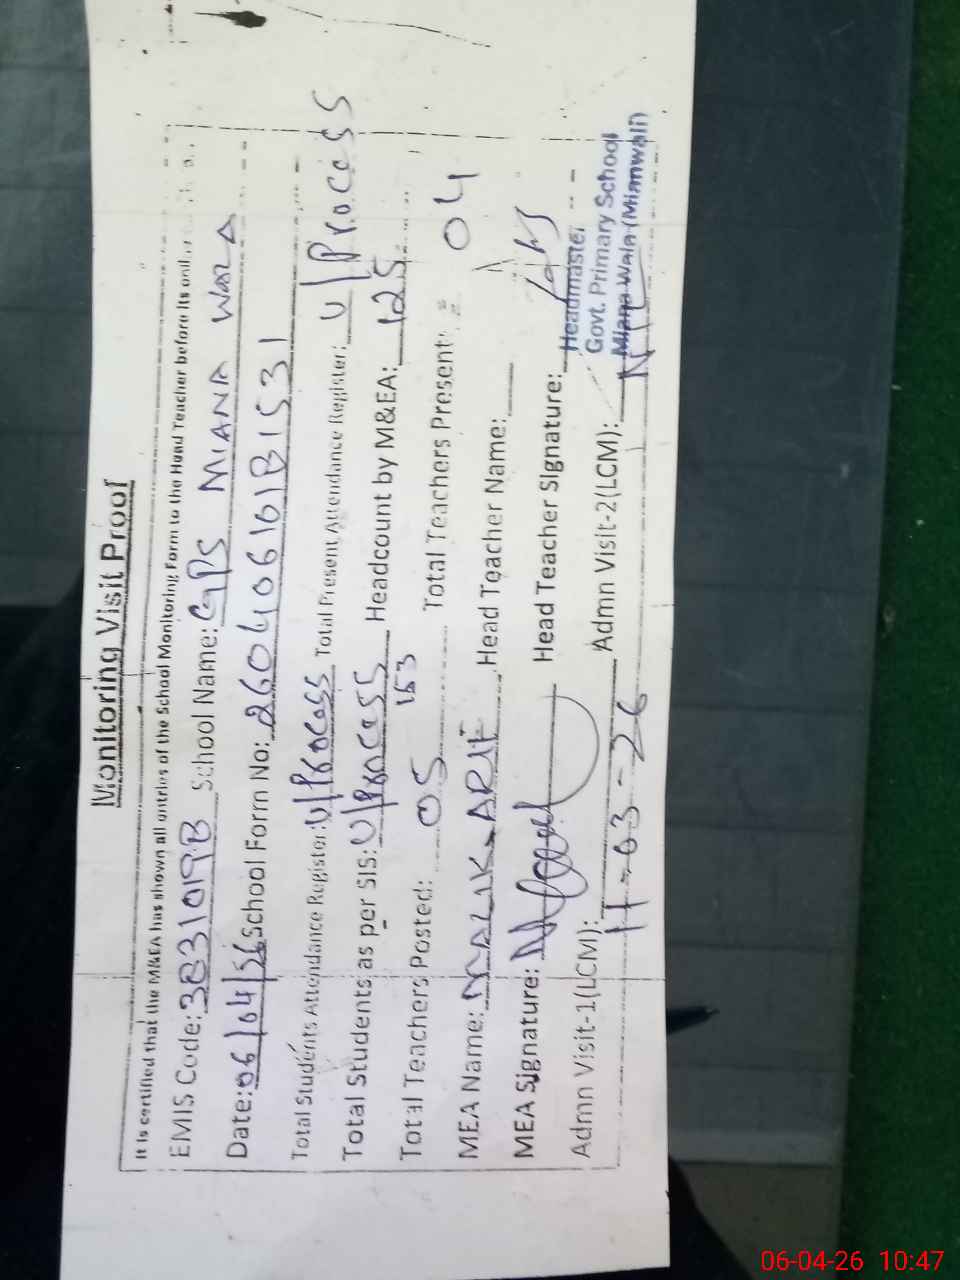 Monitoring Visit Proof
It is certified that the M&EA has shown all entries of the School Monitoring Form to the Head Teacher before its
EMIS Code: 38310198 School Name: GPS MIANA WALA
Date: 06/04/26 School Form No: 26040616181531
Total Students Attendance Register: U/Process Total Present Attendance Register: U/Process
Total Students as per SIS: U/Process Headcount by M&EA: 125
153
Total Teachers Posted: 05 Total Teachers Present: 04
MEA Name: MALIK ARIF Head Teacher Name:
MEA Signature: Head Teacher Signature:
Headmaster
Govt. Primary School
Miana Wala (Mianwali)
Admn Visit-1(LCM): 11-03-26 Admn Visit-2(LCM): NIL
06-04-26 10:47